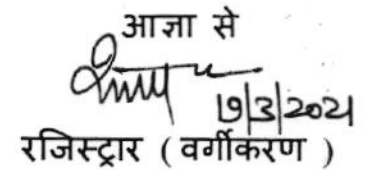 आज्ञा से
9/3/2021
रजिस्ट्रार ( वर्गीकरण )